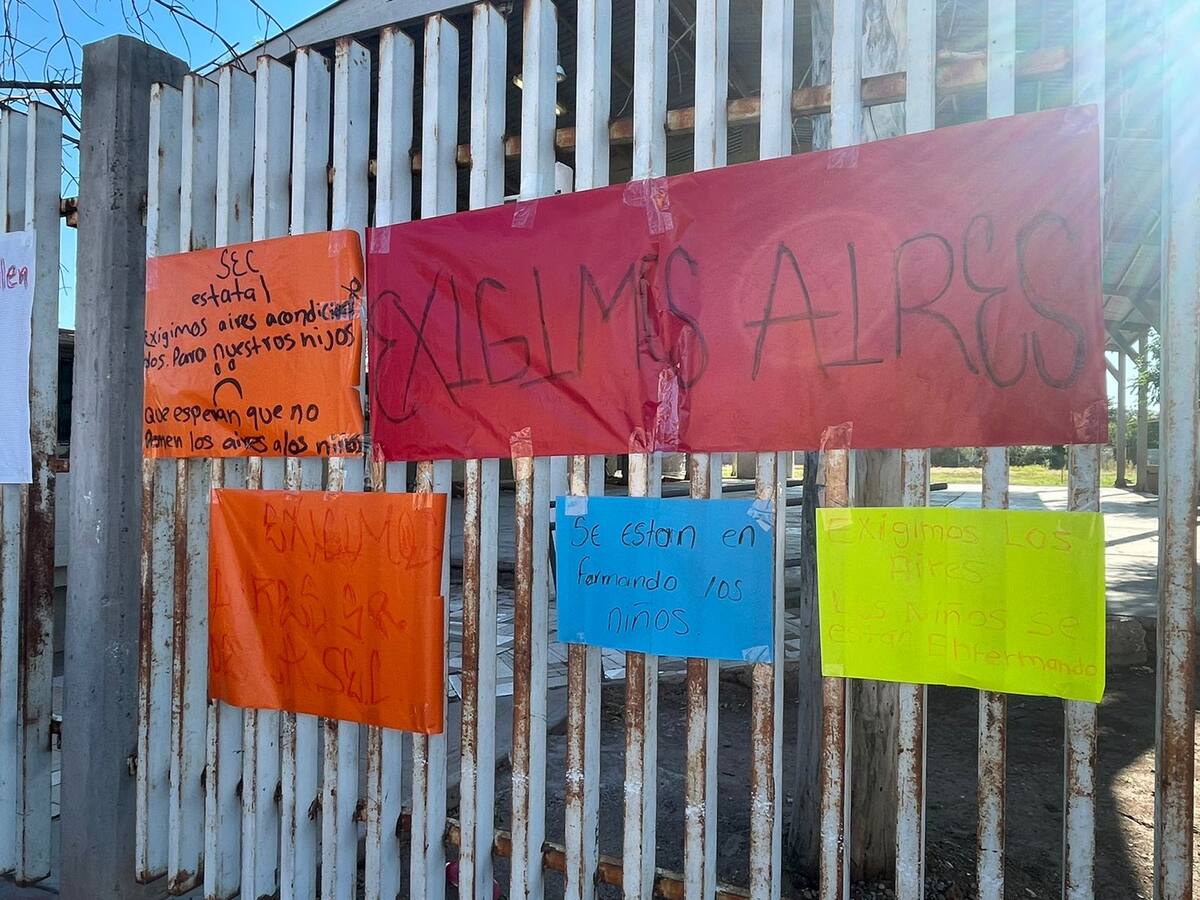 len
SEC
estatal
Exigimos aires acondiciona
dos. Para nuestros hijos
Que esperan que no
Ponen los aires a los niños
EXIGIMOS AIRES
EXIGIMOS
AIRES SR
DE LA SEC
Se estan en
fermando los
niños.
Exigimos Los
Aires
Los Niños se
estan Enfermando